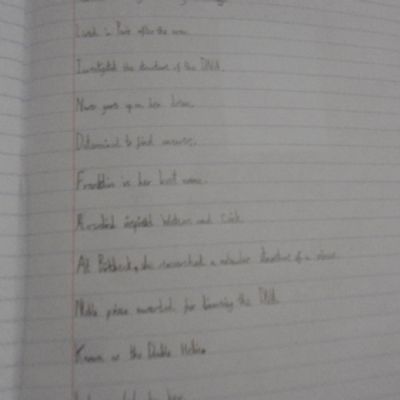 Lived in Paris after the war.
Investigated the structure of the DNA
Never gave up on her dream.
Determined to find answers.
Franklin is her last name.
Rosalind inspired Watson and Crick.
At Birkbeck, she researched a molecular structure of a virus.
Noble prize awarded for the DNA.
Known as the Double Helix